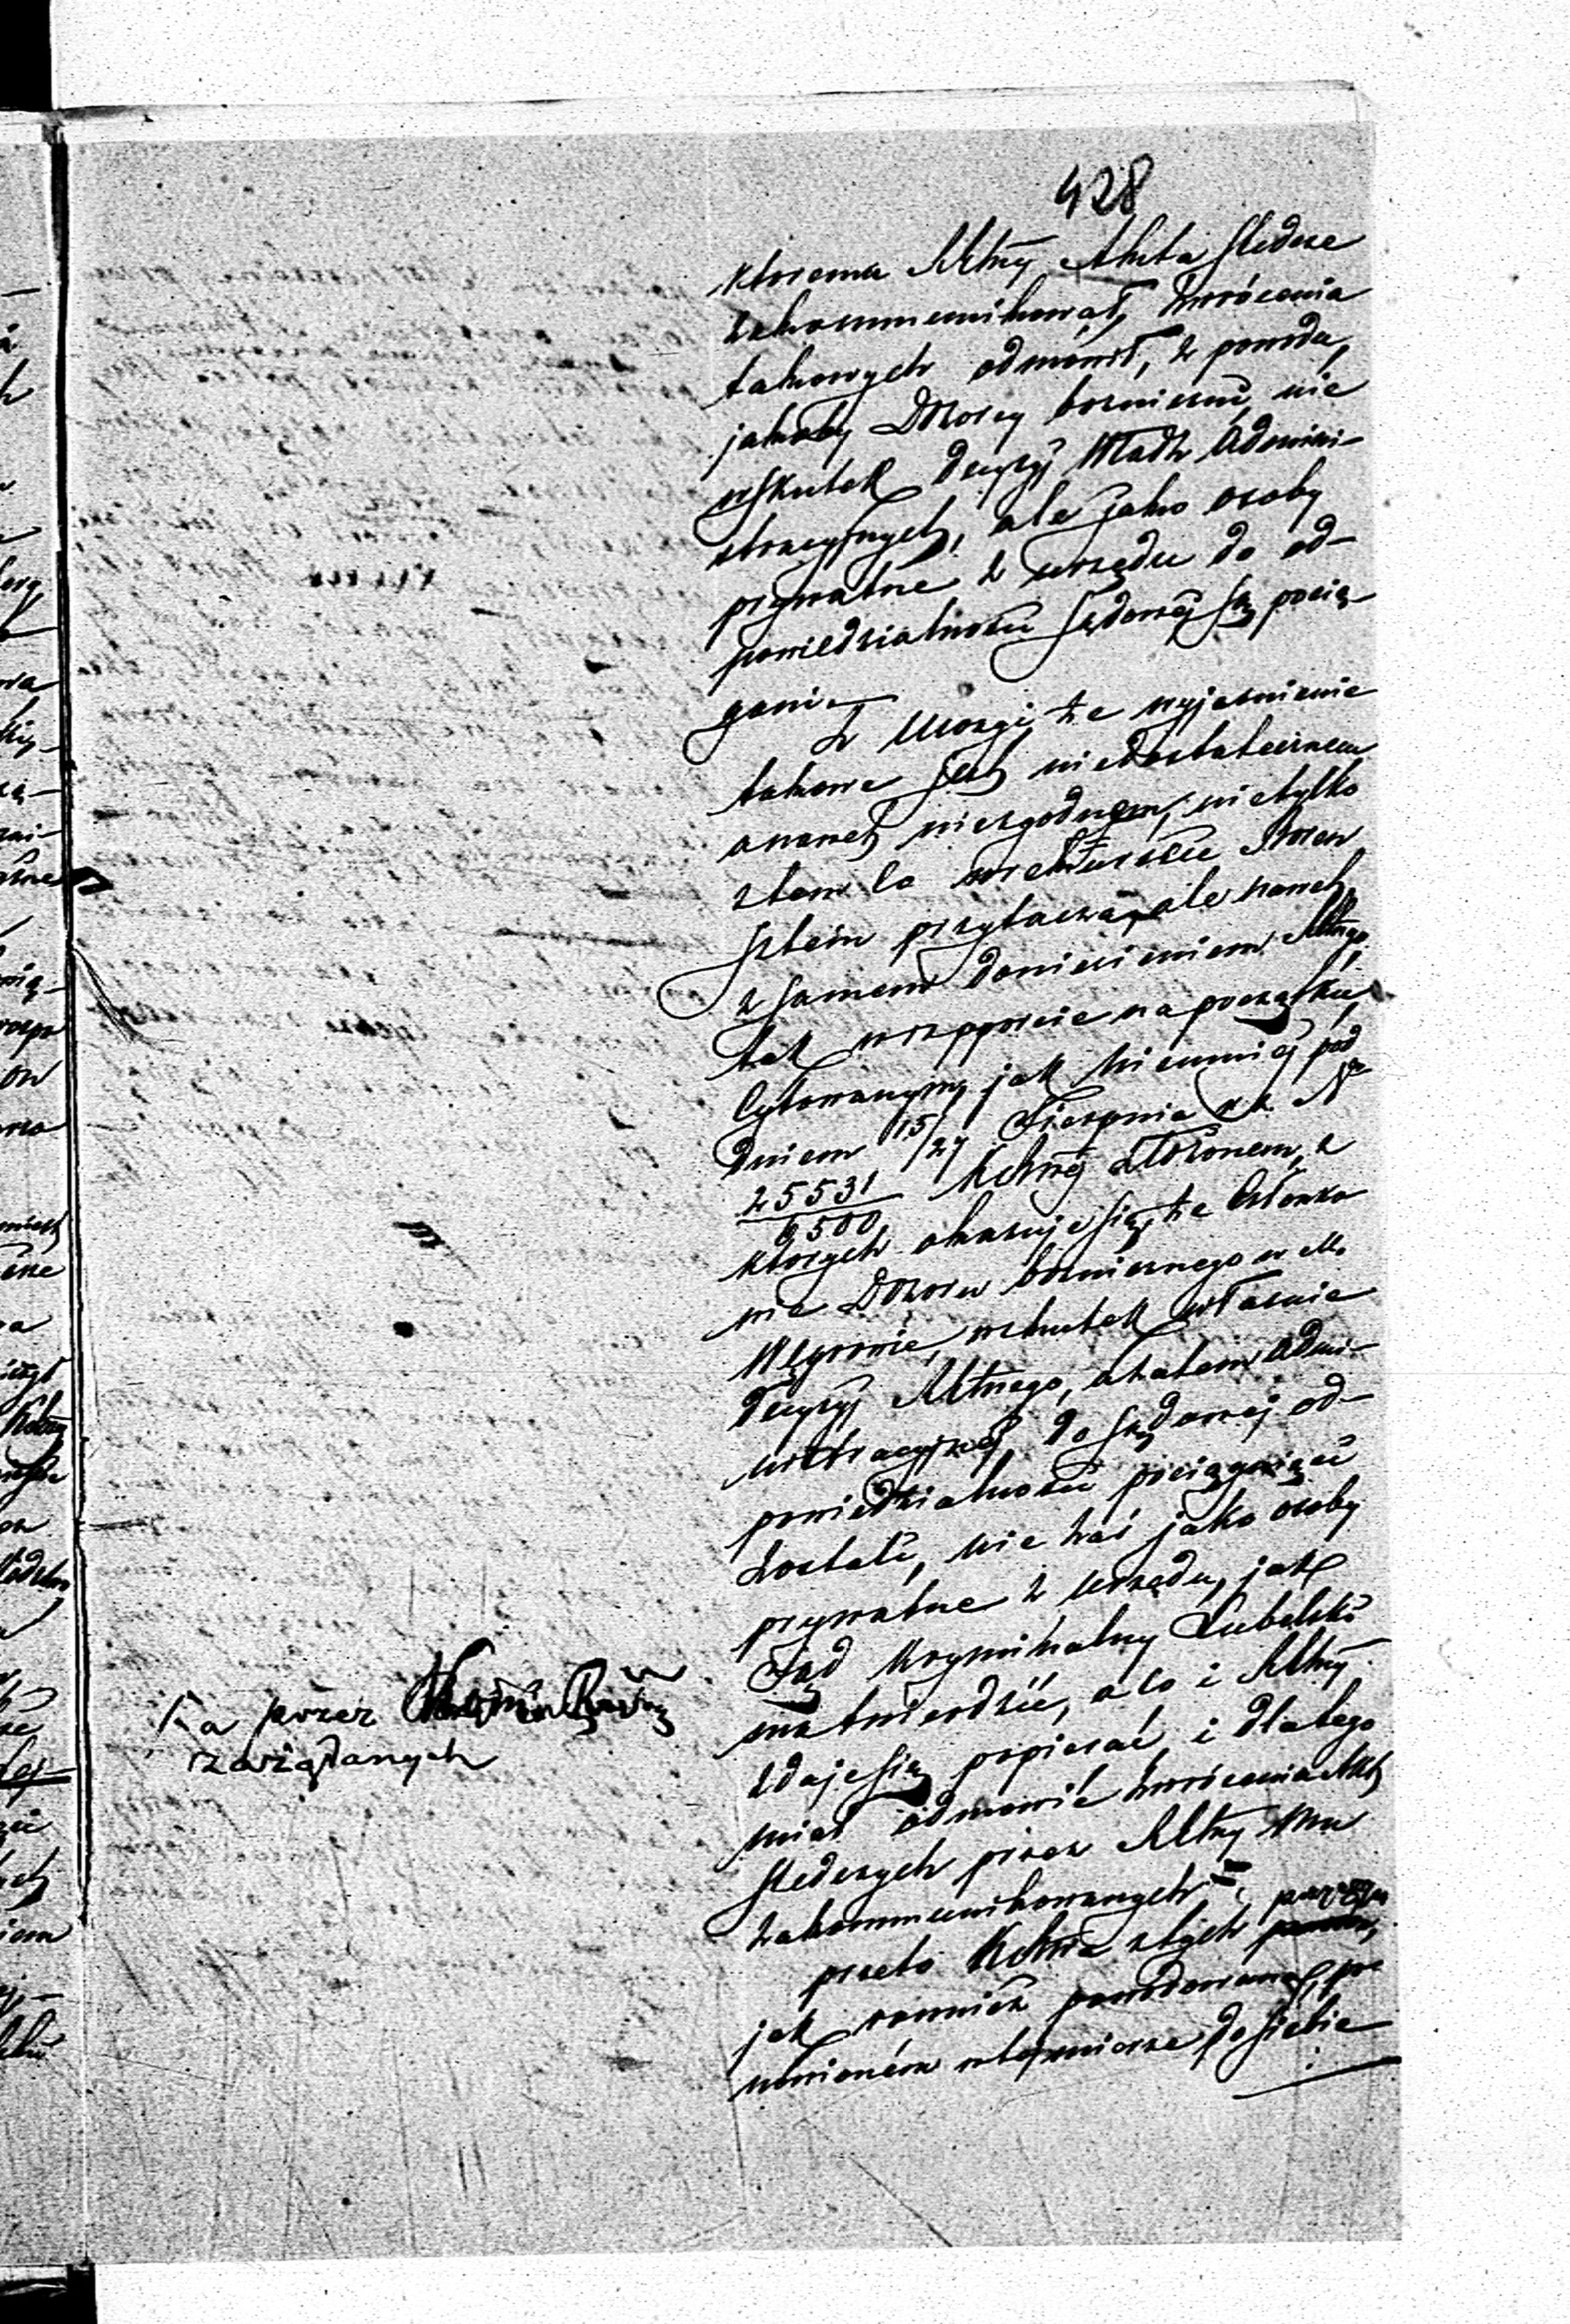 428
któremu RLtny Akta śledcze
zakommunikował, zwrócenia
takowych odmówił, z powodu,
jakoby Dozory bożniczne, nie
wskutek decyzyj Władz Admini-
stracyjnych, ale jako osoby
prywatne z urzędu do od-
powiedzialności sądowej są pocią-
gani.
Z Uwagi, że wyjaśnienie
takowe jest niedostatecznem
a nawet niezgodnem, nietylko
z tem co
sztein przytacza, ale nawet
z samem doniesieniem RLtnego,
tak w rapporcie na początku
cytowanym, jak niemniej pod
dniem 15/27 Sierpnia r. z. No
25531/6500 złożonem, z
których okazuje się, że Członko
wie Dozoru bożnicznego w M.
Węgrowie, wskutek właśnie
Decyzyj RLtnego, a zatem Admi-
nistracyjnej, do sądowej od-
powiedzialności pociągnięci
zostali, nie zaś jako osoby
prywatne z urzędu, jak
Sąd Kryminalny Lubelski
twierdzić, a co i RLtny
zdaje się popierać i dlatego
miał odmówić zwrócenia Akt
śledczych przez RLtny Mu
zakommunikowanych
przeto z tych
jak również powodowana, po
nownie do siebie
Ka przez
zażądanych